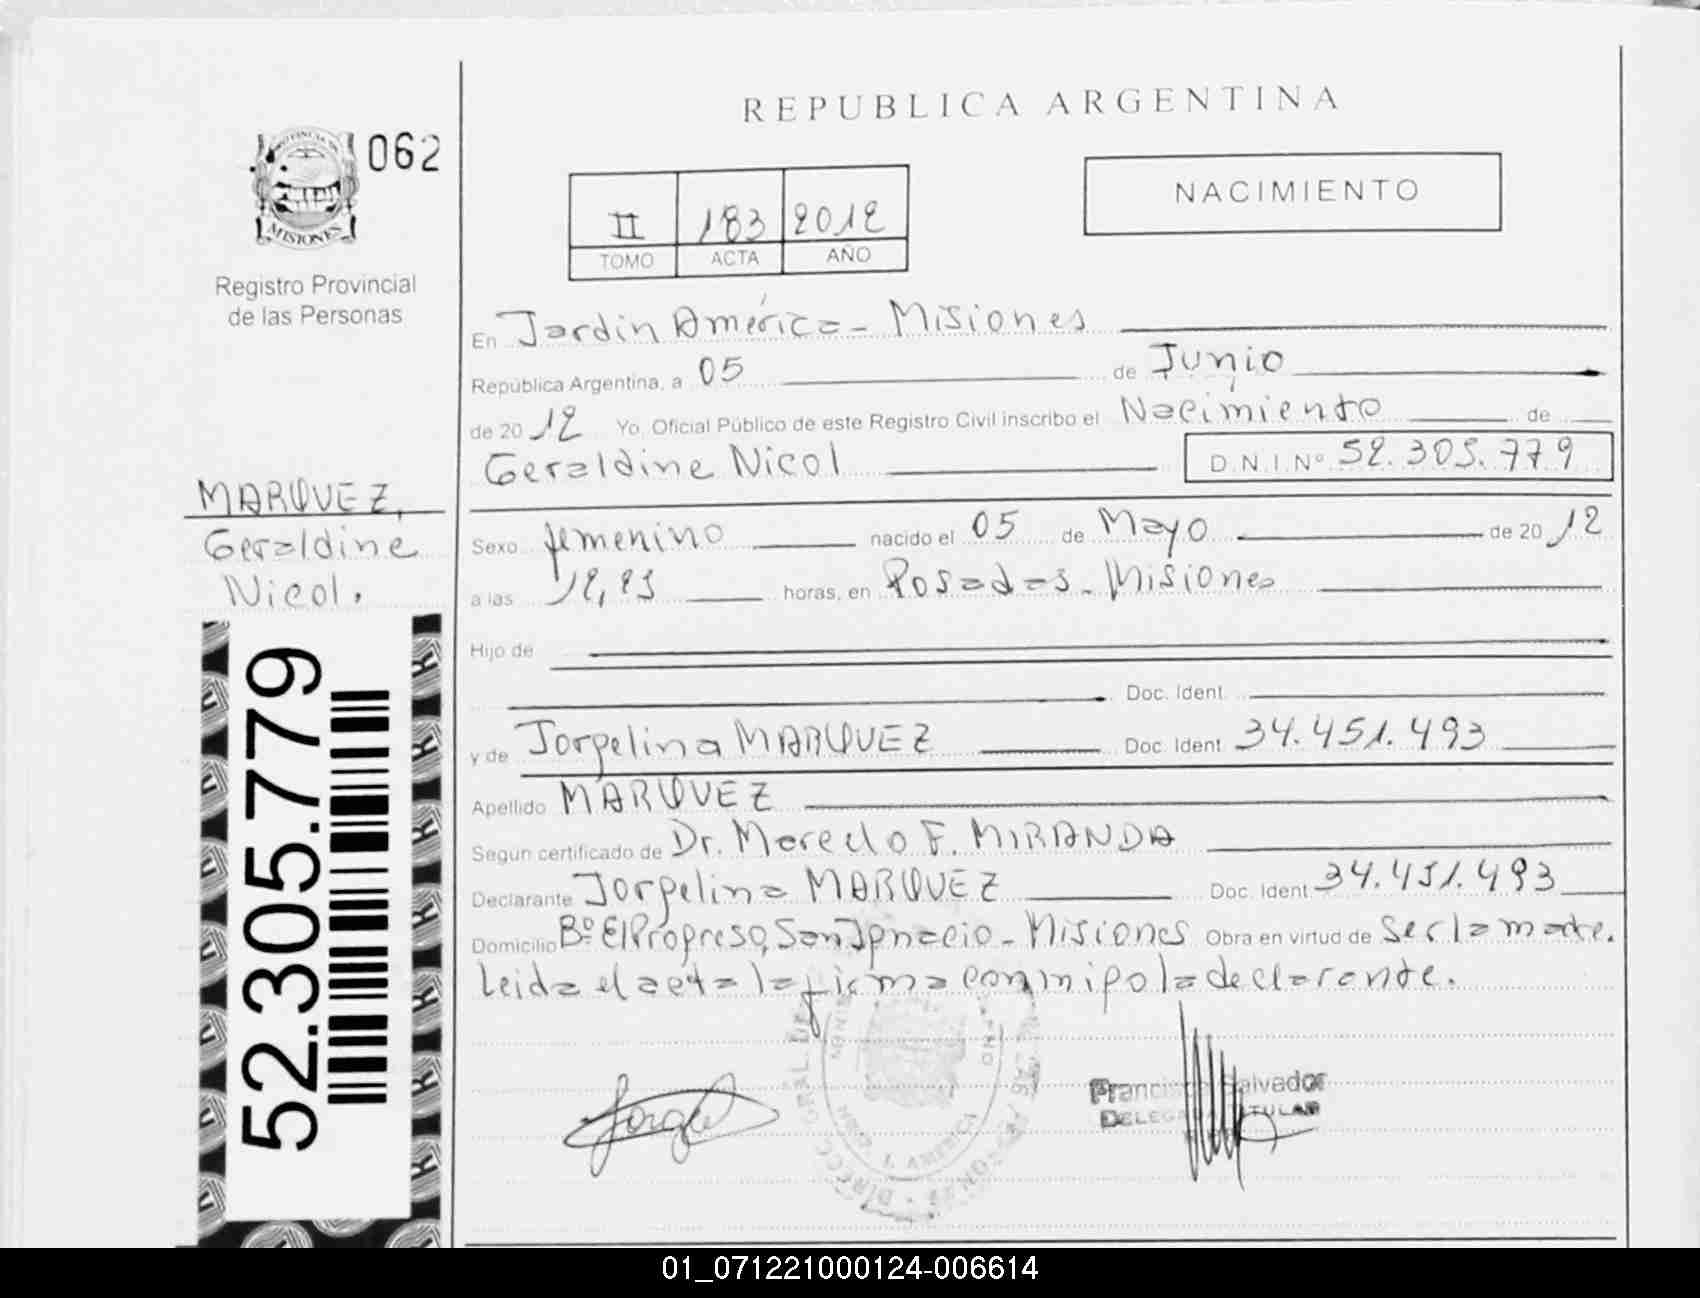 REPUBLICA ARGENTINA
062
MISIONES
Registro Provincial
de las Personas
NACIMIENTO
II 183 2012
TOMO ACTA AÑO
En Jardín América - Misiones
República Argentina, a 05 de Junio
de 2012 Yo, Oficial Público de este Registro Civil inscribo el Nacimiento de
Geraldine Nicol D.N.I.Nº 52.305.779
MARQUEZ,
Geraldine
Nicol.
Sexo femenino nacido el 05 de Mayo de 2012
a las horas, en Posadas - Misiones
Hijo de
Doc. Ident.
y de Jorgelina MARQUEZ Doc. Ident 34.451.493
Apellido MARQUEZ
Segun certificado de Dr. Marcelo F. MIRANDA
Declarante Jorgelina MARQUEZ Doc. Ident. 34.451.493
Domicilio Bº El Progreso, San Ignacio - Misiones Obra en virtud de Ser la madre.
Leida el acta la firma conmipo la declarante.
52.305.779
Francisco Salvador
DELEGADO TITULAR
01_071221000124-006614